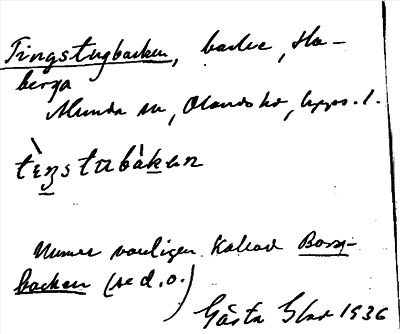 Tingstugbacken, backe, Ha-
berga
Almunda sn, Olands hd, Upps. l.
tèŋstɯbàkɐn
Numer vanligen kallad Borg-
backen (se d.o.)
Gösta Else 1936